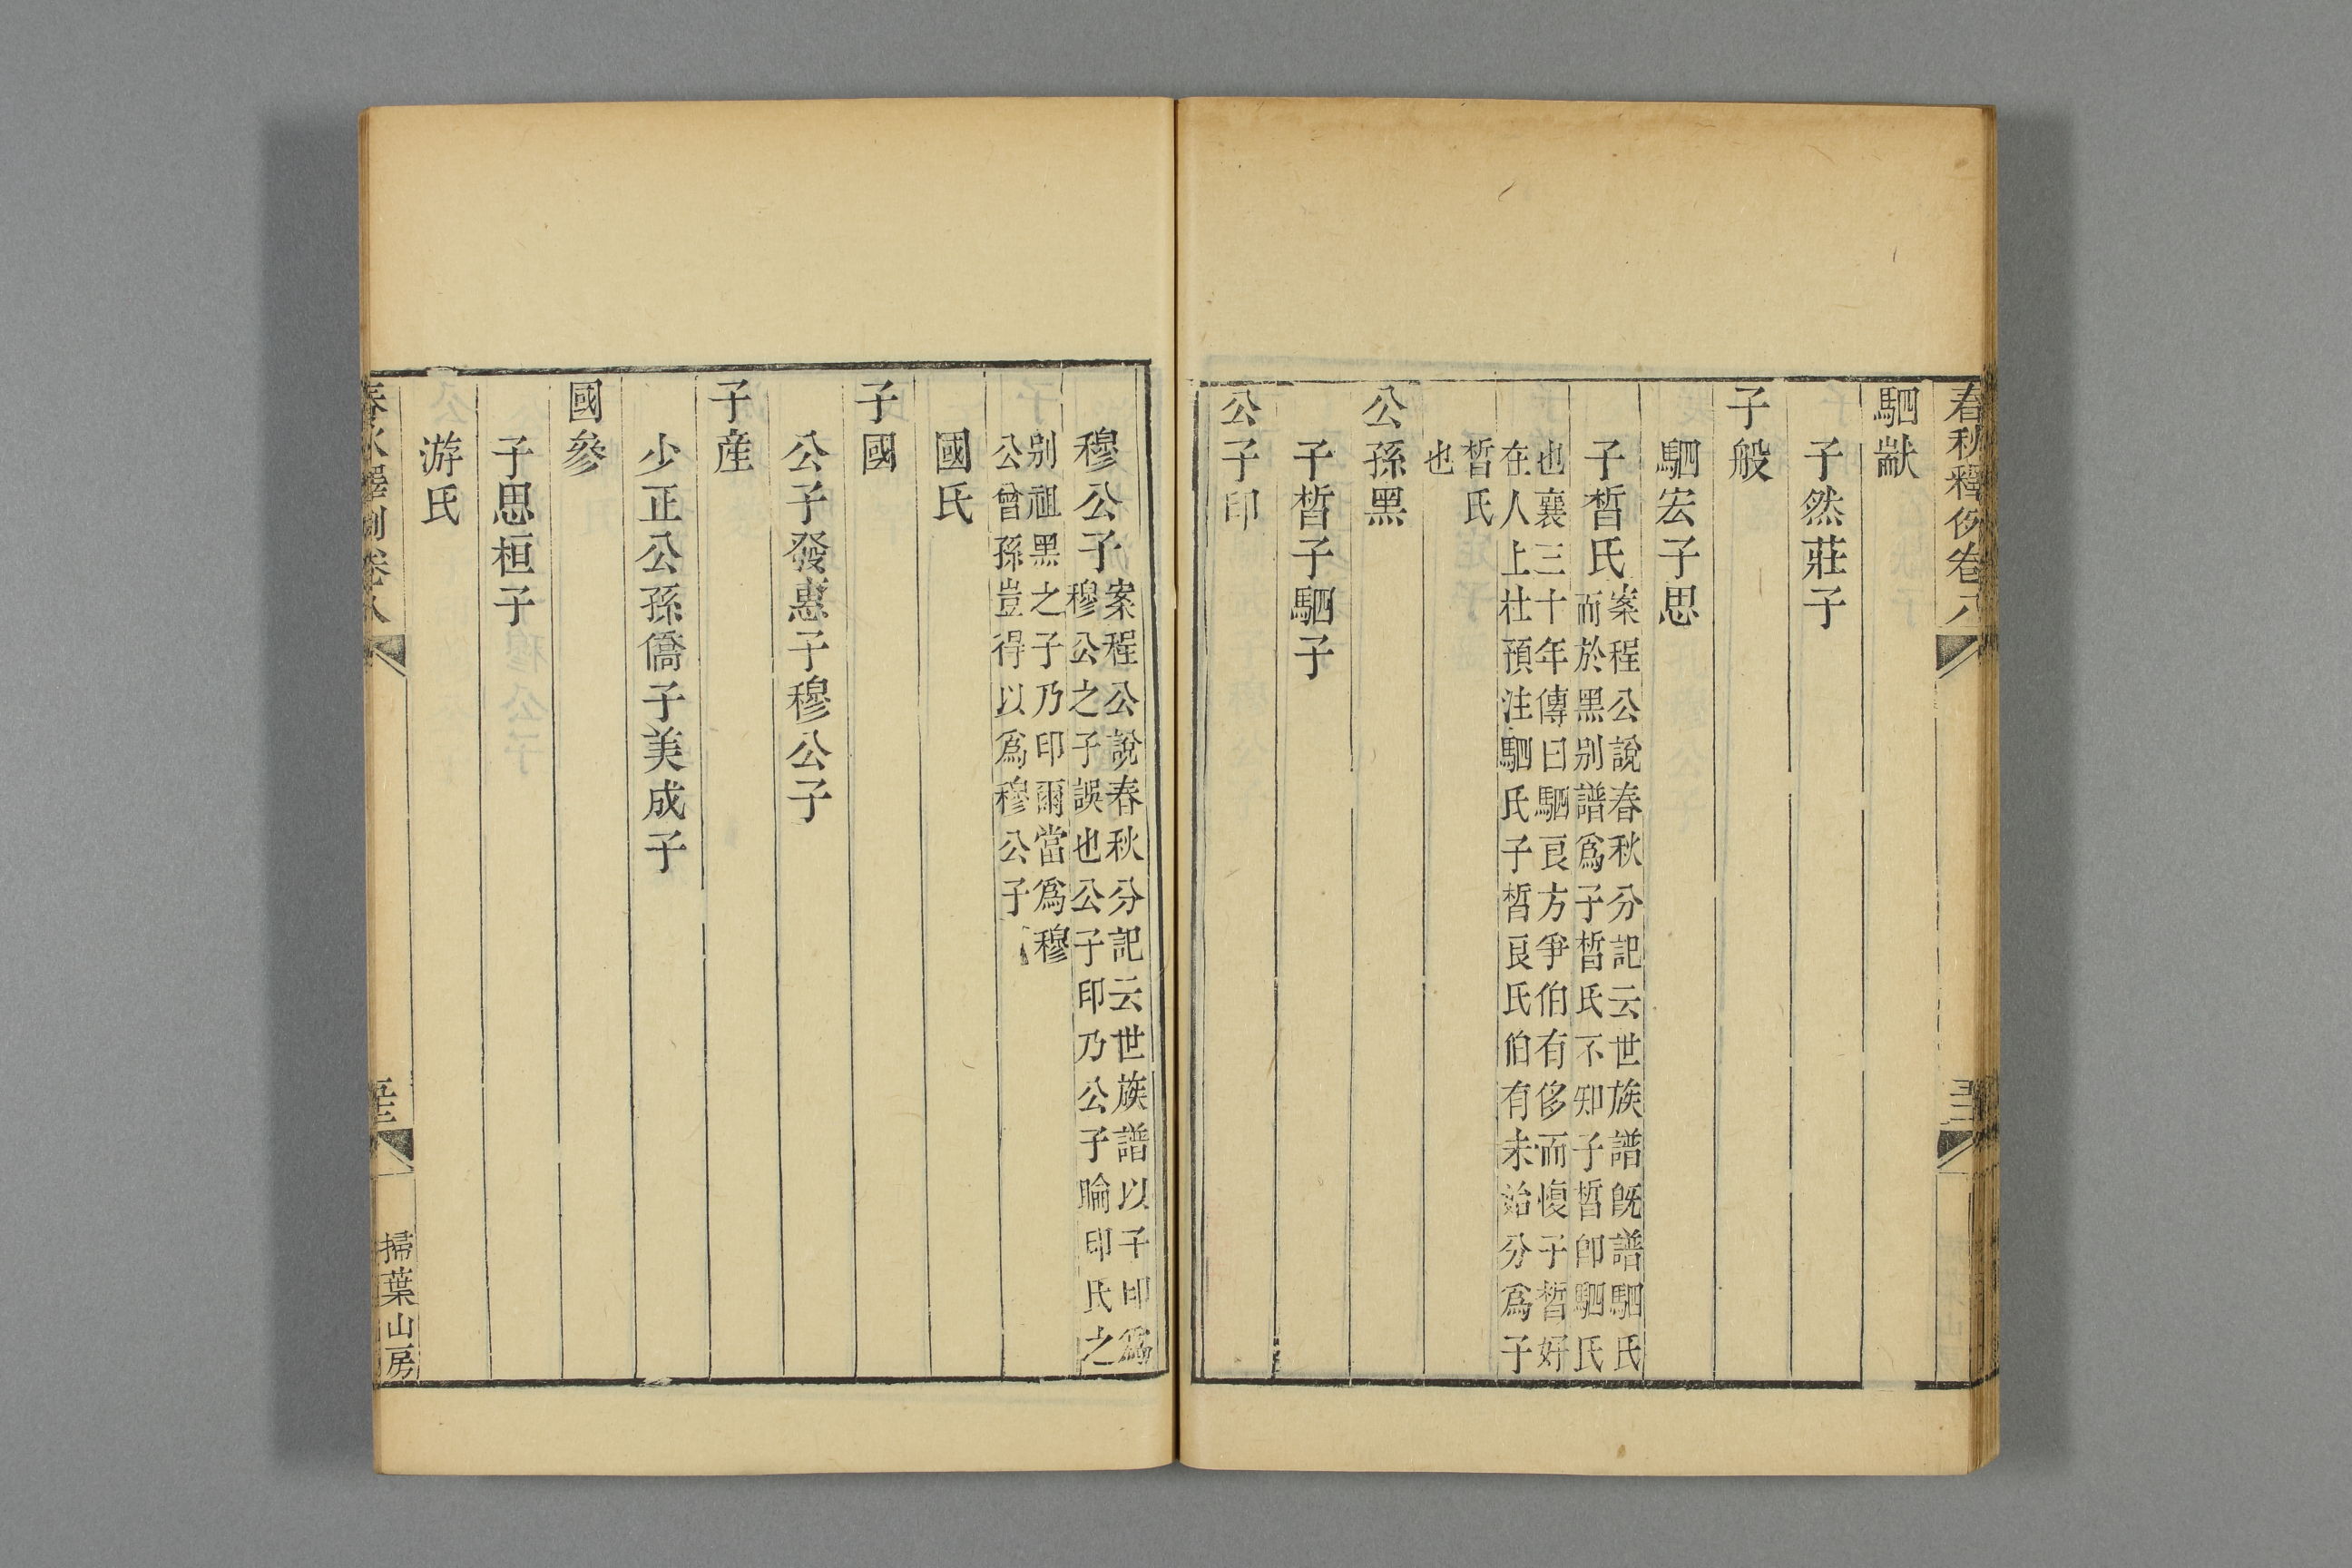 春秋釋例卷八
駟歂
子然莊子
子般
駟宏子思
子皙氏
案程公說春秋分記云世族譜旣譜駟氏
而於黑别譜爲子皙氏不知子皙卽駟氏
也襄三十年傳曰駟良方爭伯有侈而愎子皙好
在人上杜預注駟氏子皙良氏伯有未始分爲子
皙氏
也
公孫黑
子皙子駟子
公子印
穆公子
案程公說春秋分記云世族譜以子印爲
穆公之子誤也公子印乃公子睔印氏之
别祖黑之子乃印爾當爲穆
公曾孫豈得以爲穆公子
國氏
子國
公子發惠子穆公子
子產
少正公孫僑子美成子
國參
子思桓子
游氏
春秋釋例卷八
掃葉山房